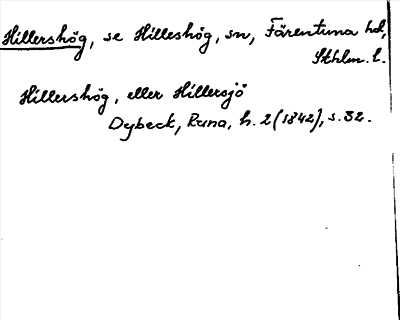 Hillershög, se Hilleshög, sn, Färentuna hd,
Sthlm. l.
Hillershög, eller Hillersjö
Dybeck, Runa, h. 2 (1842), s. 32.